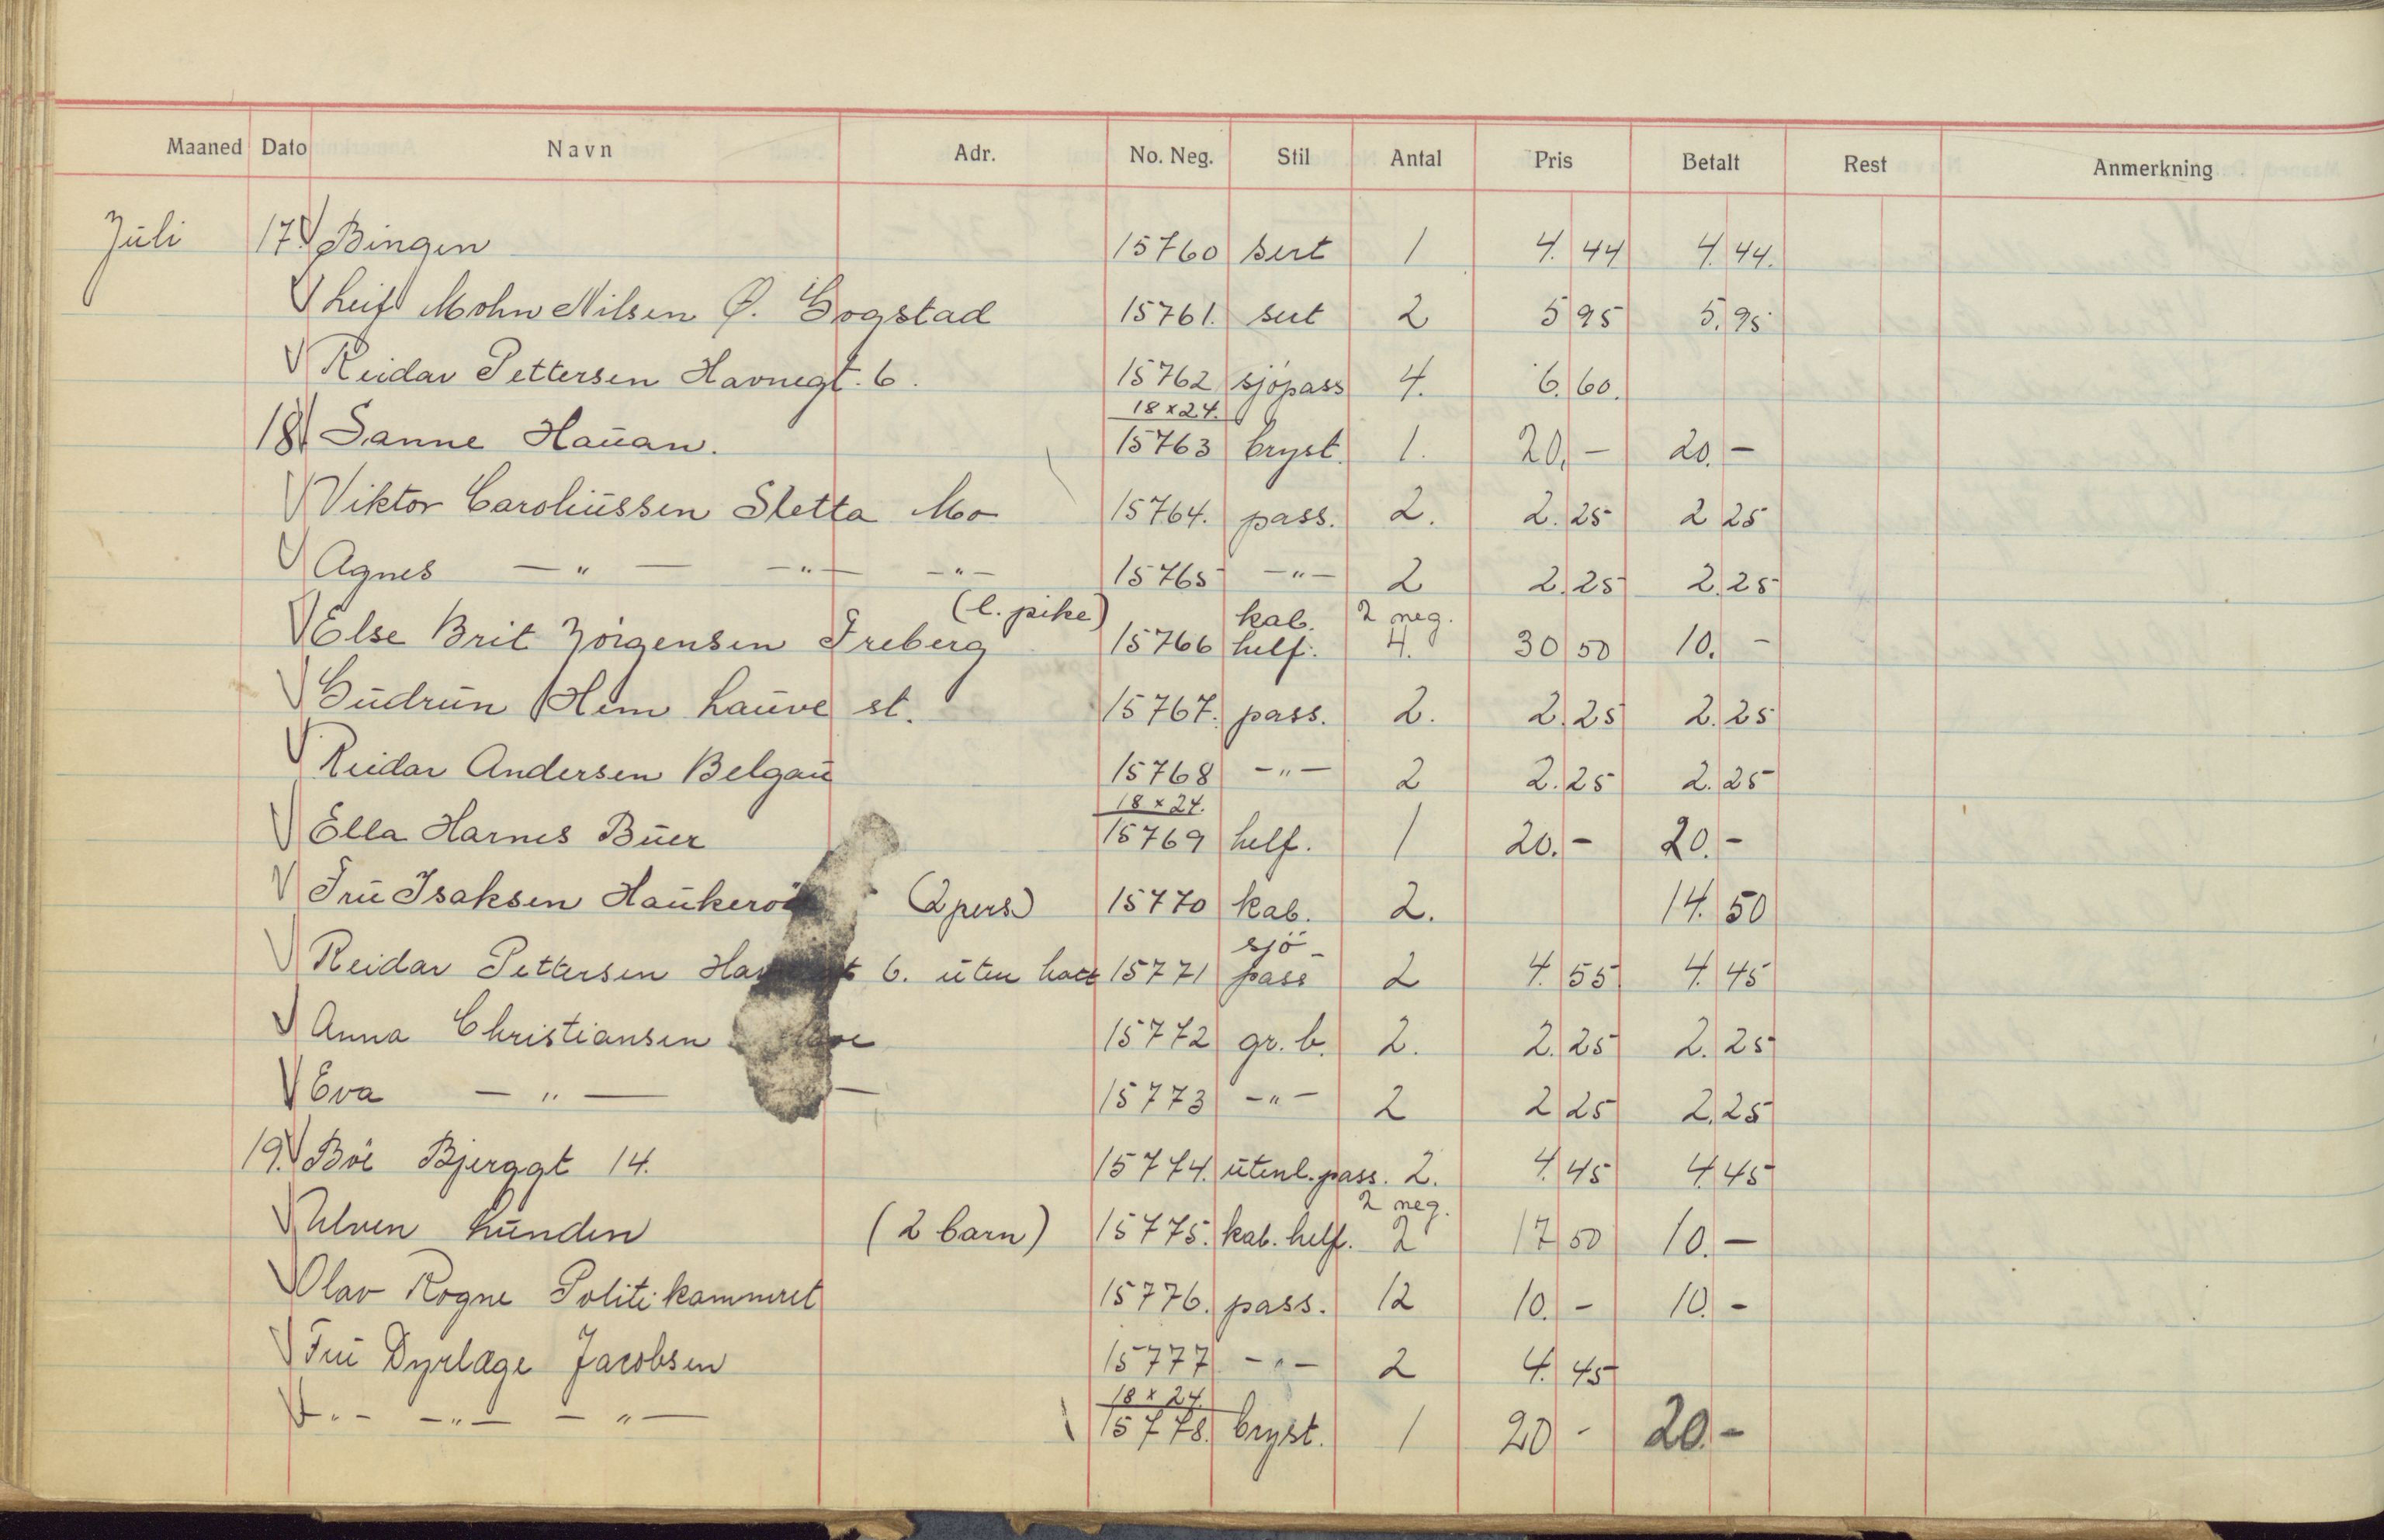 Maaned Dato Navn Adr. No. Neg. Stil Antal Pris Betalt Rest Anmerkning
Juli 17. Bingen 15760 sert 1 4.44 4.44.
Leif Mohn Nilsen Ø. Gogstad 15761. sert 2 5 95 5.95
Reidar Pettersen Havnegt. 6. 15762 sjöpass 4. 6.60.
18 x 24.
18 Sanne Hauan. 15763 bryst. 1. 20.- 20.-
Viktor Caroliussen Sletta Mo 15764. pass. 2. 2.25 2 25
Agnes — " — — " — — " — 15765 — " — 2 2.25 2.25
(l. pike) kab. 2 neg.
Else Brit Jörgensen Freberg 15766 helf. 4. 30 50 10. -
Gudrun Hem Lauve st. 15767. pass. 2. 2.25 2.25
Reidar Andersen Belgau 15768 — " — 2 2.25 2.25
18 x 24.
Ella Harnes Buer 15769 helf. 1 20.- 20.-
Fru Isaksen (2 pers) 15770 kab. 2. 14.50
sjö-
Reidar Pettersen 6. uten hatt 15771 pass 2 4.55 4.45
Anna Christiansen 15772 gr. b. 2. 2.25 2.25
Eva — " — — 15773 — " — 2 2 25 2.25
19. Böe Bjerggt 14. 15774. utenl. pass. 2. 4.45 4.45
2 neg.
Ulven Lunden (2 barn) 15775. kab. helf. 2 17 50 10.-
Olav Rogne Politikammeret 15776. pass. 12 10.- 10.-
Fru Dyrlæge Jacobsen 15777 — " — 2 4.45
18 x 24.
— " — — " — — " — 15778. bryst. 1 20 - 20.-